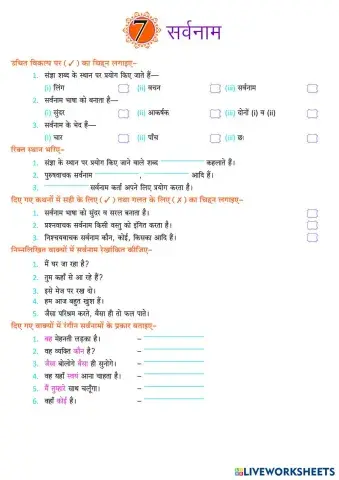 7 सर्वनाम
उचित विकल्प पर ( ✓ ) का चिह्न लगाइए–
1. संज्ञा शब्द के स्थान पर प्रयोग किए जाते हैं—
(i) लिंग (ii) वचन (iii) सर्वनाम
2. सर्वनाम भाषा को बनाता है—
(i) सुंदर (ii) आकर्षक (iii) दोनों (i) व (ii)
3. सर्वनाम के भेद हैं—
(i) चार (ii) पाँच (iii) छः
रिक्त स्थान भरिए–
1. संज्ञा के स्थान पर प्रयोग किए जाने वाले शब्द कहलाते हैं।
2. पुरुषवाचक सर्वनाम , आदि हैं।
3. सर्वनाम कर्ता अपने लिए प्रयोग करता है।
दिए गए कथनों में सही के लिए ( ✓ ) तथा गलत के लिए ( ✗ ) का चिह्न लगाइए–
1. सर्वनाम भाषा को सुंदर व सरल बनाता है।
2. प्रश्नवाचक सर्वनाम किसी वस्तु को इंगित करता है।
3. निश्चयवाचक सर्वनाम कौन, कोई, किसका आदि हैं।
निम्नलिखित वाक्यों में सर्वनाम रेखांकित कीजिए–
1. मैं घर जा रहा हूँ?
2. तुम कहाँ से आ रहे हैं?
3. इसे मेज पर रख दो।
4. हम आज बहुत खुश हैं।
5. जैसा परिश्रम करते, वैसा ही तो फल पाते।
दिए गए वाक्यों में रंगीन सर्वनामों के प्रकार बताइए–
1. वह मेहनती लड़का है। –
2. वह व्यक्ति कौन है? –
3. जैसा बोलोगे वैसा ही सुनोगे। –
4. वह यहाँ स्वयं आना चाहता है। –
5. मैं तुम्हारे साथ चलूँगा। –
6. वहाँ कोई है। –
LIVEWORKSHEETS